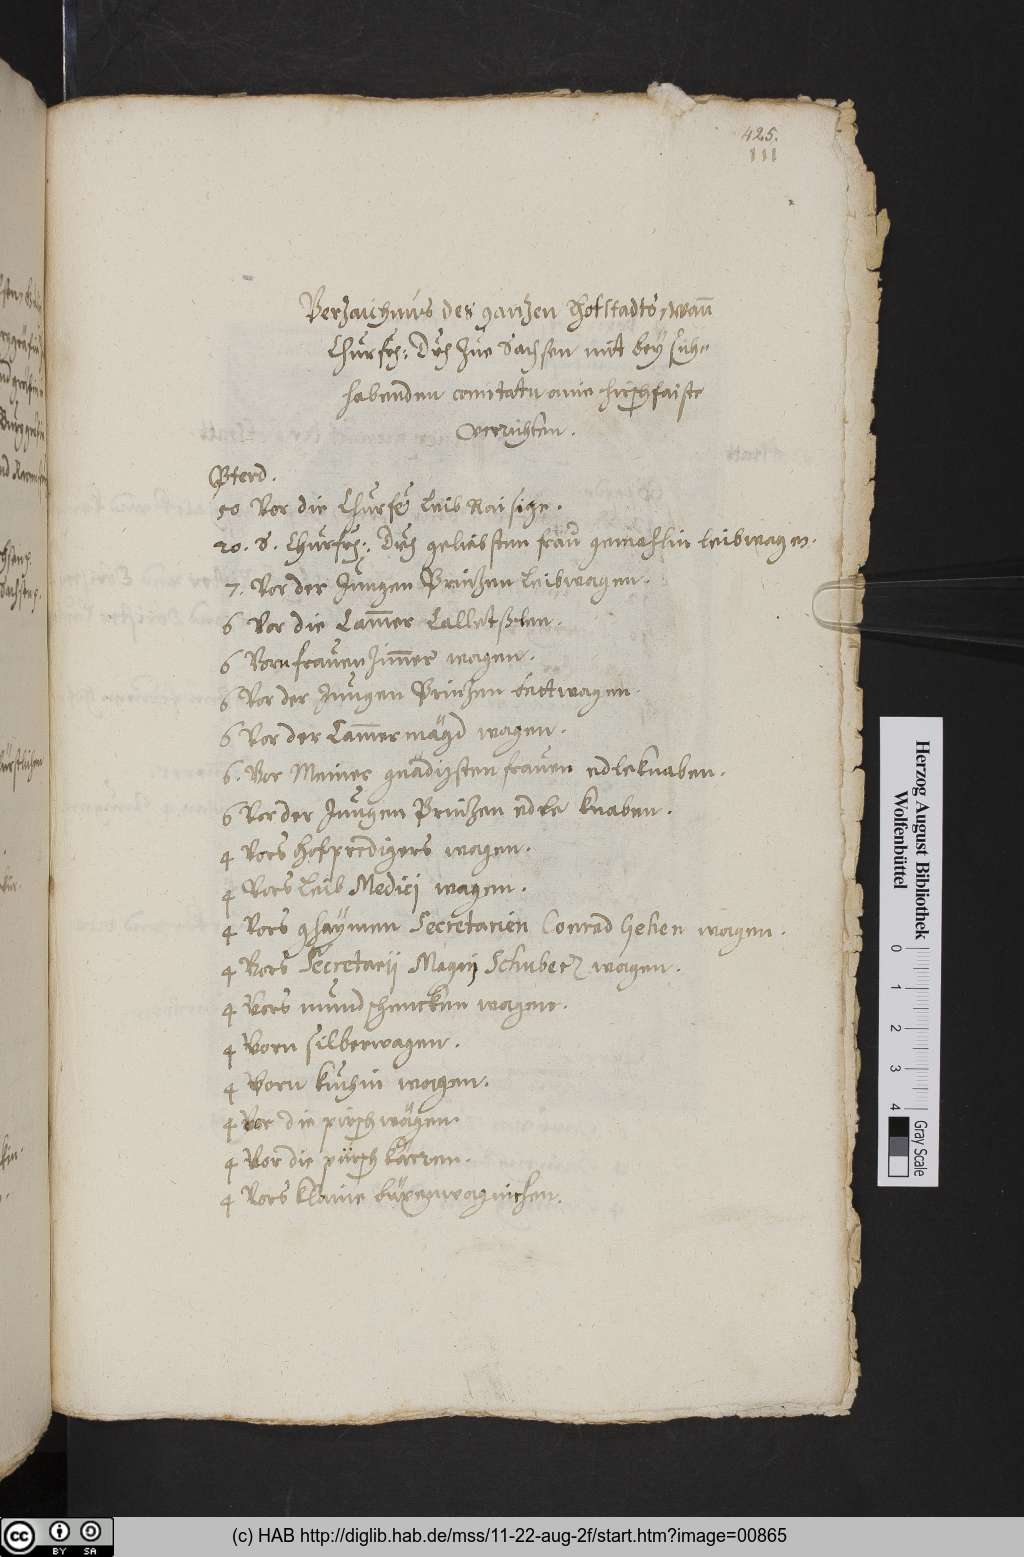 425.
111
Verzaichnus des ganzen Hofstadts, wan̄
Churfr: Drl zue Sachsen mit bey sich
habenden comitatu eine hirschfaiste
verrichten.
Pferd.
50 Vor die Churfr Leib Raisige.
20. S. Churfr: Drl geliebsten frau gemahlin leibwagen.
7. Vor der Jungen Prinzen Leibwagen.
6 Vor die Cam̄er
6 Vorn frauen Zim̄er wagen.
6 Vor der Jungen Prinzen wagen.
6 Vor der Cam̄ermägd wagen.
6. Vor Meiner gnädigsten frauen edleknaben.
6 Vor der Jungen Prinzen edle knaben.
4 Vors hofpredigers wagen.
4 Vors Leib Medici wagen.
4 Vors ghaymen Secretarien Conrad Gehen wagen.
4 Vors Secretarii Magni Schuberz wagen.
4 Vors mundschencken wagen.
4 Vorn silberwagen.
4 Vorn kuchin wagen.
4 Vor die pirsch wägen.
4 Vor die pürsch kärren.
4 Vors klaine wagnichen.
Herzog August Bibliothek
Wolfenbüttel
0 1 2 3 4
Gray Scale
cc BY SA
(c) HAB http://diglib.hab.de/mss/11-22-aug-2f/start.htm?image=00865